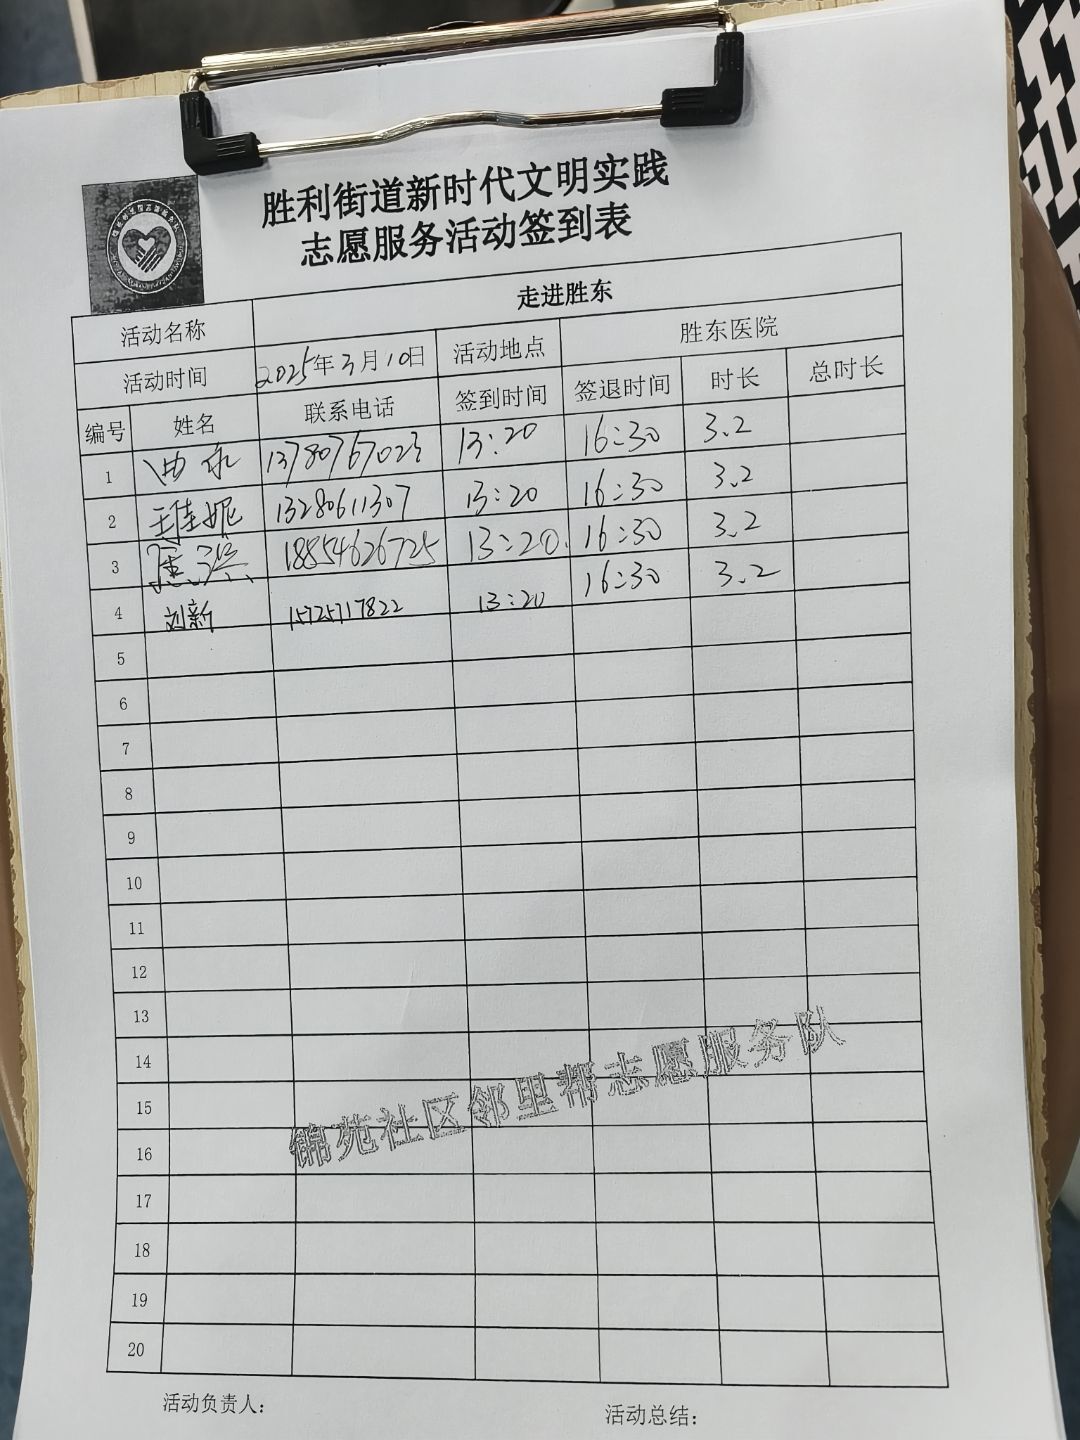 胜利街道新时代文明实践
志愿服务活动签到表
活动名称 走进胜东
活动时间 2025年3月10日 活动地点 胜东医院
编号 姓名 联系电话 签到时间 签退时间 时长 总时长
1 13780767023 13:20 16:30 3.2
2 王佳妮 13280611307 13:20 16:30 3.2
3 18854626725 13:20 16:30 3.2
4 刘新 15725717822 13:20 16:30 3.2
5
6
7
8
9
10
11
12
13
14
15
16
17
18
19
20
锦苑社区邻里帮志愿服务队
活动负责人: 活动总结: